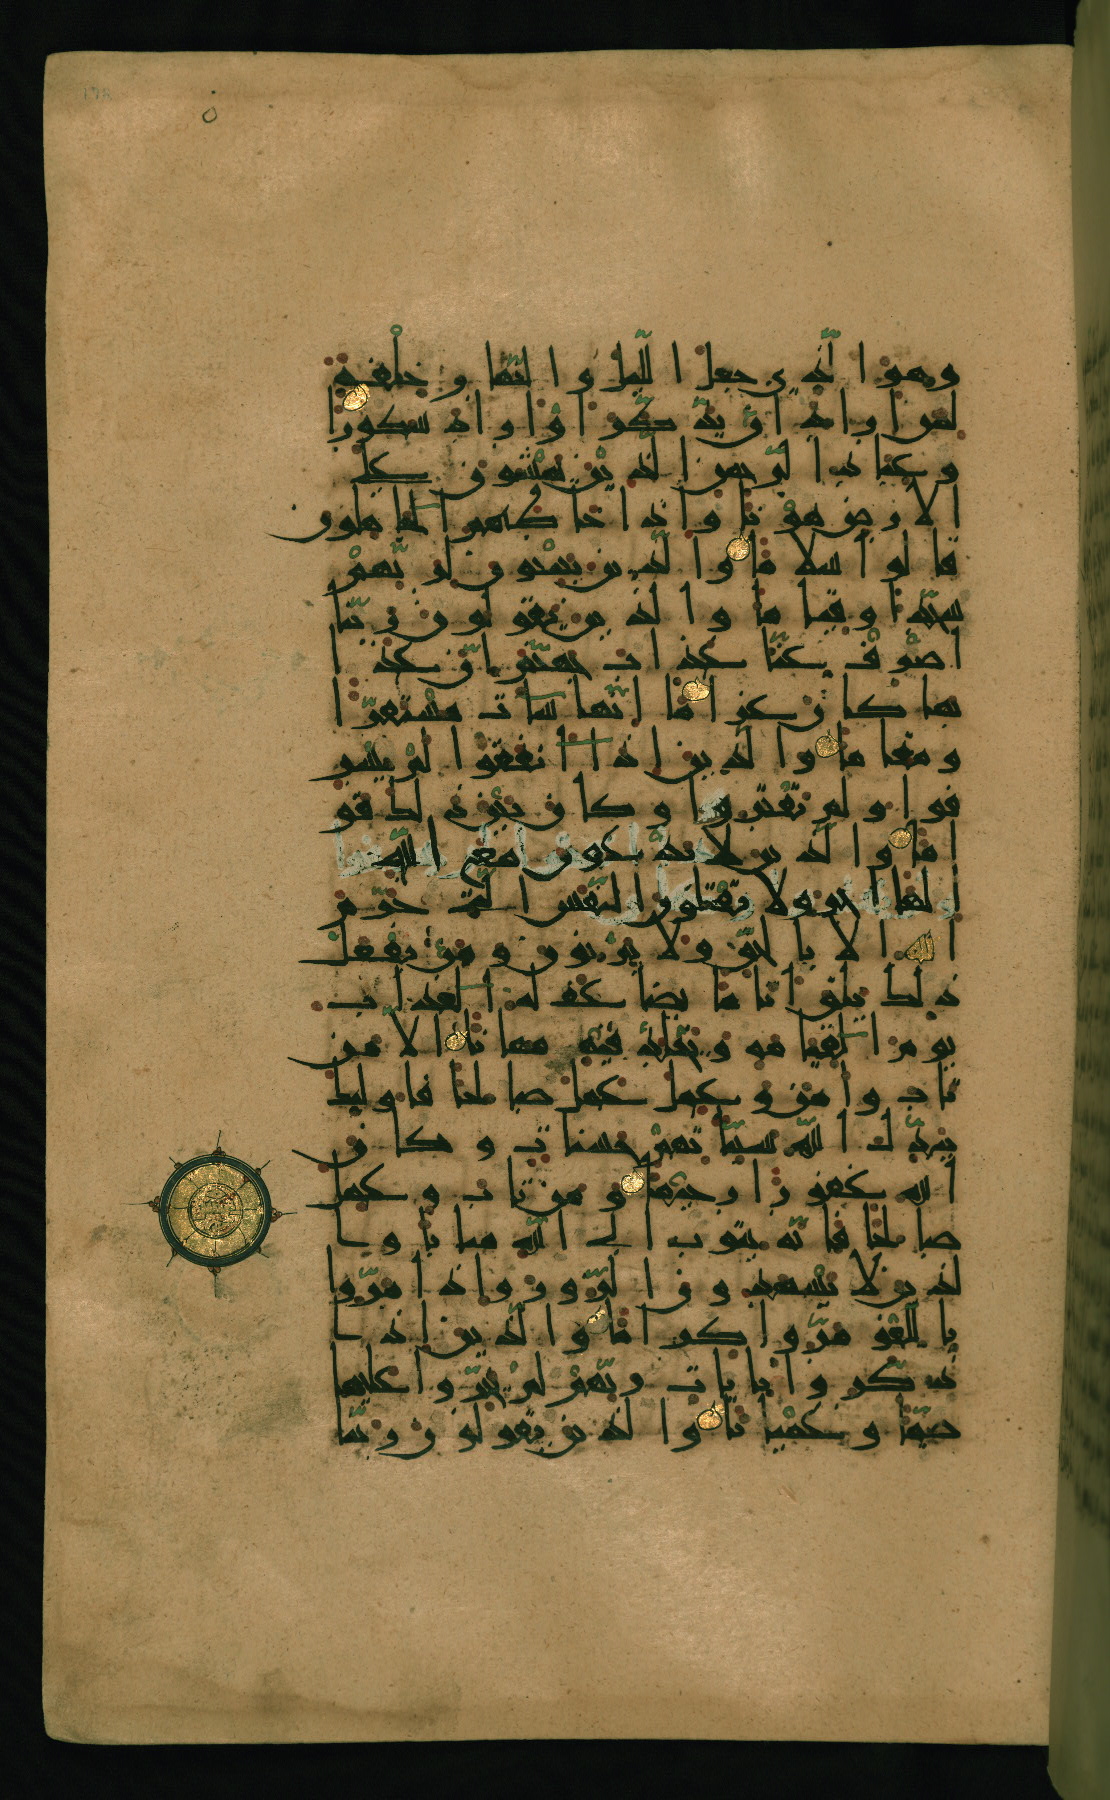 وهو الذي جعل الليل والنهار خلفة
لمن اراد ان يذكر او اراد شكورا
وعباد الرحمن الذين يمشون على
الارض هونا واذا خاطبهم الجاهلون
قالوا سلاما والذين يبيتون لربهم
سجدا وقياما والذين يقولون ربنا
اصرف عنا عذاب جهنم ان عذا
بها كان غراما انها ساءت مستقرا
ومقاما والذين اذا انفقوا لم يسر
فوا ولم يقتروا وكان بين ذلك قو
اما والذين لا يدعون مع الله
الها اخر ولا يقتلون النفس التي حرم
الله الا بالحق ولا يزنون ومن يفعل
ذلك يلق اثاما يضاعف له العذاب
يوم القيامة ويخلد فيه مهانا الا من
تاب وامن وعمل عملا صالحا فاولئك
يبدل الله سيئاتهم حسنات وكان
الله غفورا رحيما ومن تاب وعمل
صالحا فانه يتوب الى الله متابا وا
لذين لا يشهدون الزور واذا مروا
باللغو مروا كراما والذين اذا
ذكروا بايات ربهم لم يخروا عليها
صما وعميانا والذين يقولون ربنا